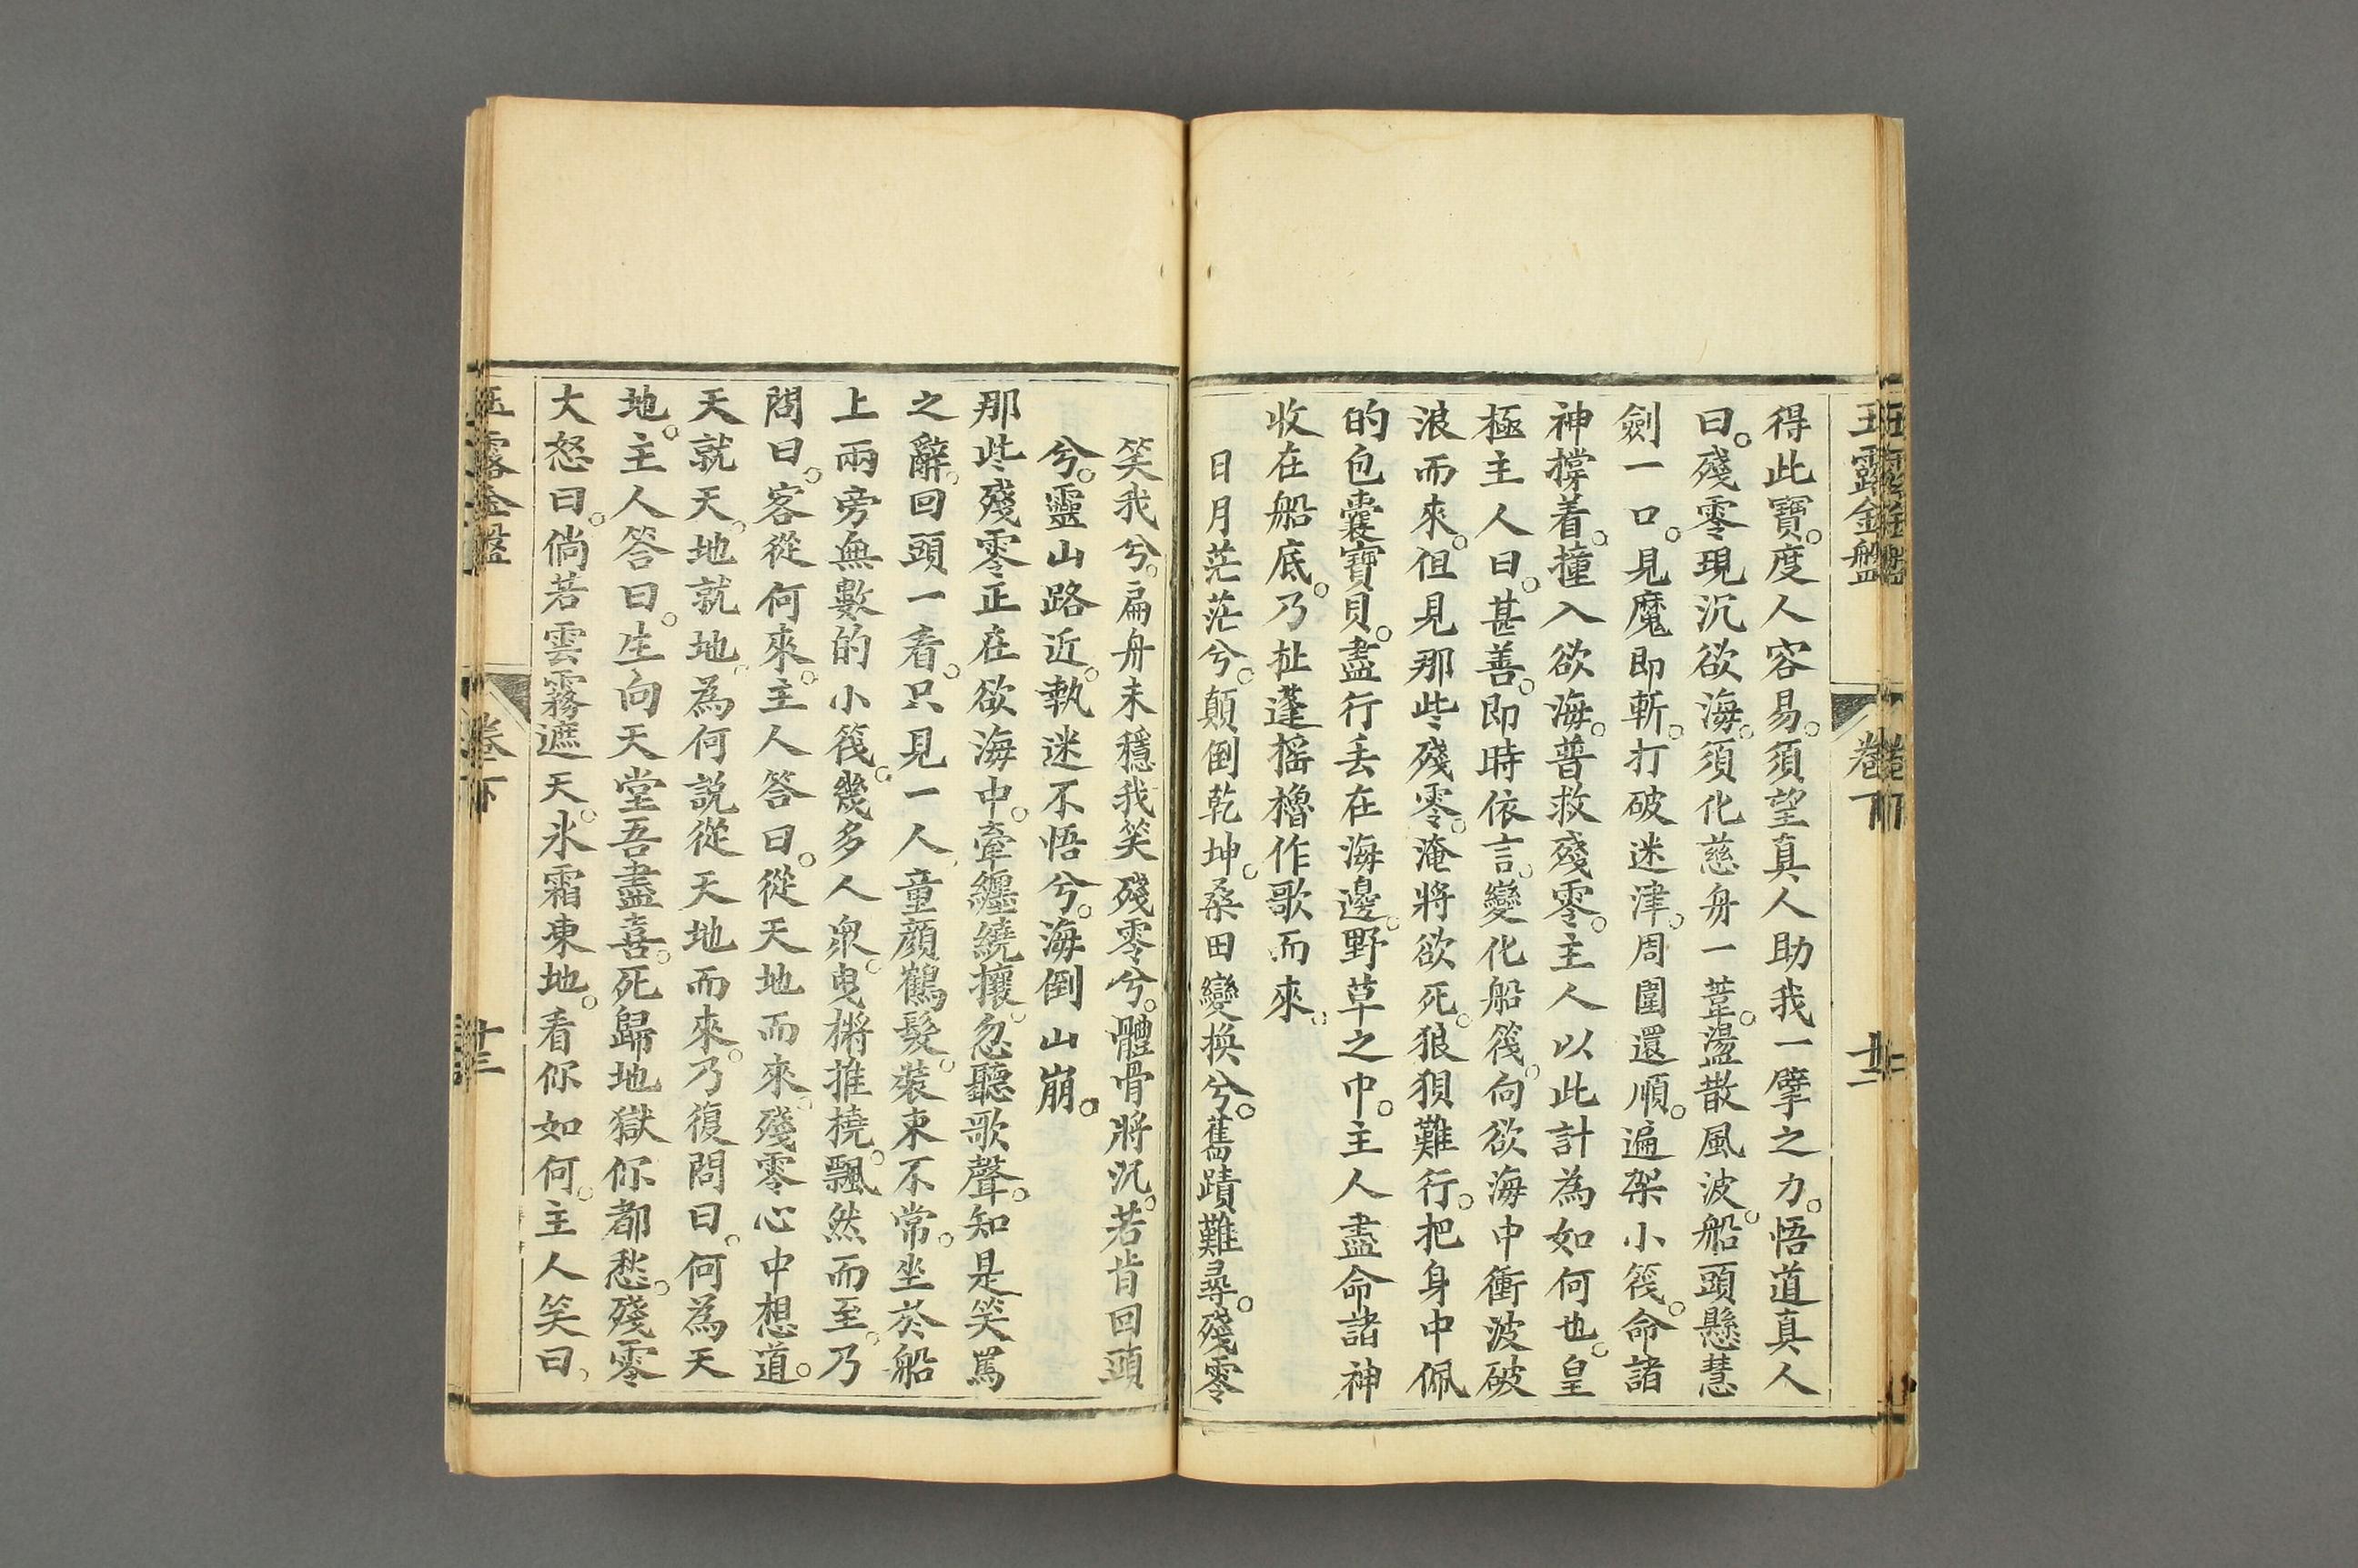 玉露金盤 卷下 十二
得此寶。度人容易。須望真人助我一擘之力。悟道真人
曰。殘零現沉欲海。須化慈舟一葦。盪散風波。船頭懸慧
劍一口。見魔即斬。打破迷津。周圍還順。遍架小筏。命諸
神撐着。撞入欲海。普救殘零。主人以此計為如何也。皇
極主人曰。甚善。即時依言。變化船筏。向欲海中衝波破
浪而來。但見那些殘零。淹將欲死。狼狽難行。把身中佩
的包囊寶貝。盡行丢在海邊。野草之中。主人盡命諸神
收在船底。乃扯蓬摇櫓作歌而來。
日月茫茫兮。顛倒乾坤。桑田變換兮。舊蹟難尋。殘零
笑我兮。扁舟未穩我笑殘零兮。體骨將沉。若肯回頭
兮。靈山路近。執迷不悟兮。海倒山崩。
那些殘零正在欲海中。牽纏繞攘。忽聽歌聲。知是笑罵
之辭。回頭一看。只見一人。童顏鶴髮。裝束不常。坐於船
上兩旁無數的小筏。幾多人眾。曳槳推橈。飄然而至。乃
問曰。客從何來。主人答曰。從天地而來。殘零心中想道。
天就天。地就地。為何説從天地而來。乃復問曰。何為天
地。主人答曰。生向天堂吾盡喜。死歸地獄你都愁。殘零
大怒曰。倘若雲霧遮天。氷霜東地。看你如何。主人笑曰。
玉露金盤 卷下 十三